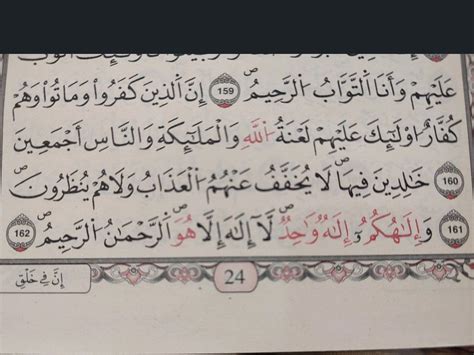 عَلَيْهِمْ وَأَنَا اَ۬لتَّوَّابُ اُ۬لرَّحِيمُ ۖ 159 إِنَّ اَ۬لذِينَ كَفَرُواْ وَمَاتُواْ وَهُمْ
كُفَّارٌ اوْلَٰٓئِكَ عَلَيْهِمْ لَعْنَةُ اُ۬للَّهِ وَالْمَلَٰٓئِكَةِ وَالنَّاسِ أَجْمَعِينَ
160 خَٰلِدِينَ فِيهَاۖ لَا يُخَفَّفُ عَنْهُمُ اُ۬لْعَذَابُ وَلَا هُمْ يُنظَرُونَۖ
161 وَإِلَٰهُكُمُۥٓ إِلَٰهٞ وَٰحِدٞۖ لَّآ إِلَٰهَ إِلَّا هُوَ اَ۬لرَّحْمَٰنُ اُ۬لرَّحِيمُۖ 162
24
إِنَّ فِي خَلْقِ